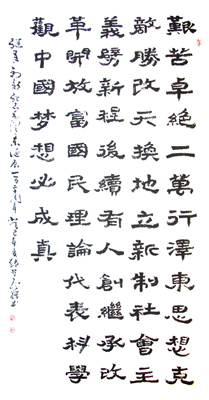 艱苦卓絕二萬行澤東思想克
敵勝改天換地立新制社會主
義劈新程後續有人創繼承改
革開放富國民理論代表科學
觀中國夢想必成真